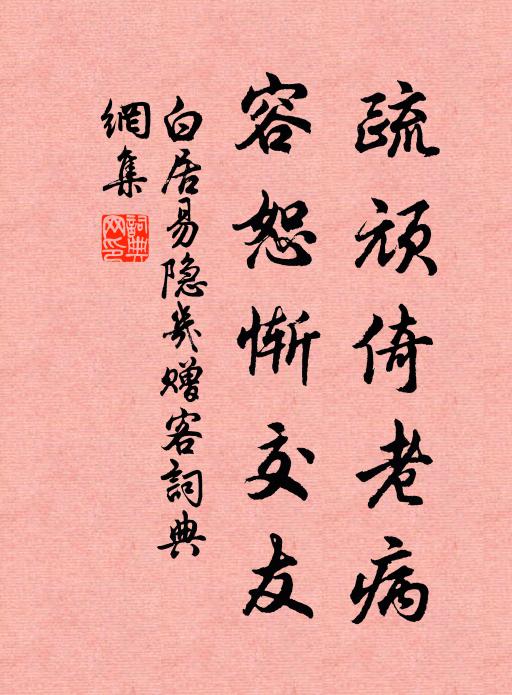 疏顽倚老病
容恕惭交友
白居易隐几赠客詞典
網集
詞典
网印